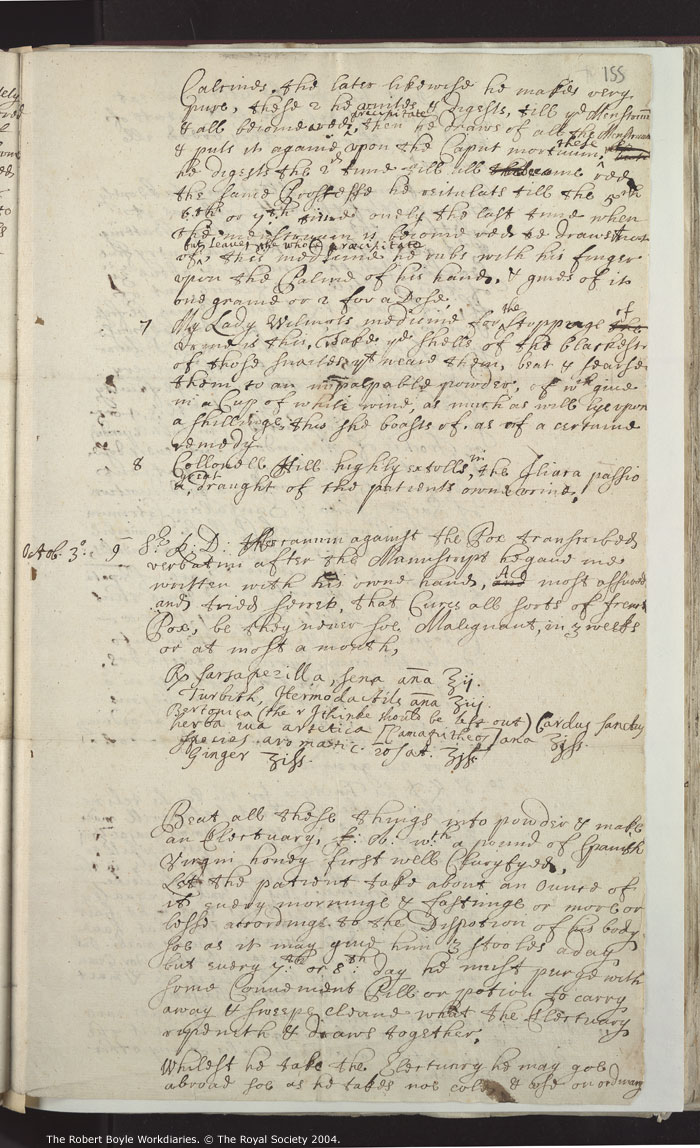 155
Calcines. the later likewise he makes very
pure, these 2 he unites & digests, till ye Menstruum
& all become red, then he draws of all the Menstruum
precipitate
& puts it againe upon the Caput mortuum, these
he digests the 2d time till all become red
the same Prossesse he reitulats till the 5th
6th or 7th time onely the last time when
the menstruum is become red he draws it not
but leaves the whole precipitate
of, this medicine he rubs with his finger
upon the Palme of his hand, & gives of it
one graine or 2 for a Dose.
7 My Lady Wilmots medicine for the stoppage of
Urine is this, Take ye shells of the blackest
of those snailes yt weare them, beat & searse
them to an impalpable powder, of wch give
in a Cup of white wine, as much as will lye upon
a shillinge, this she boasts of as of a certaine
remedy
8 Collonell Hill highly extolls in the Iliaca passio
a great draught of the patients owne urine,
Octob. 3o. 9 K. D. against the Pox transcribed
verbatim after the Manuscript he gave me
written with his owne hand, A most assured
and tried secret, that Cures all sorts of french
Pox, be they never soe Malignant, in 3 weeks
or at most a month,
℞ sarsaperilla, sena ana ℥ij.
Turbith, Hermodactils ana ℥iij
Bertonica (the r I thinke should be left out) Cardus sanctus
herba iva artetica [Camapitheos] ana ℥jss.
species aromatic. rosat. ℥jss
Ginger ℥jss.
Beat all these things into powder & make
an Electuary, wth a pound of Spanish
Virgin honey first well Claryfyed,
Let the patient take about an Ounce of
it every morninge & fastinge or more or
lesse accordinge to the Dispotion of his body
soe as it may give him 3 stooles a day
but every 7th or 8th: day he must purge with
some Convenient Pill or potion to carry
away & sweepe cleane what the Electuary
ripeneth & draws together,
Whilest he take the Electuary he may goe
abroad soe as he takes noe cold & use an ordinary
The Robert Boyle Workdiaries. © The Royal Society 2004.